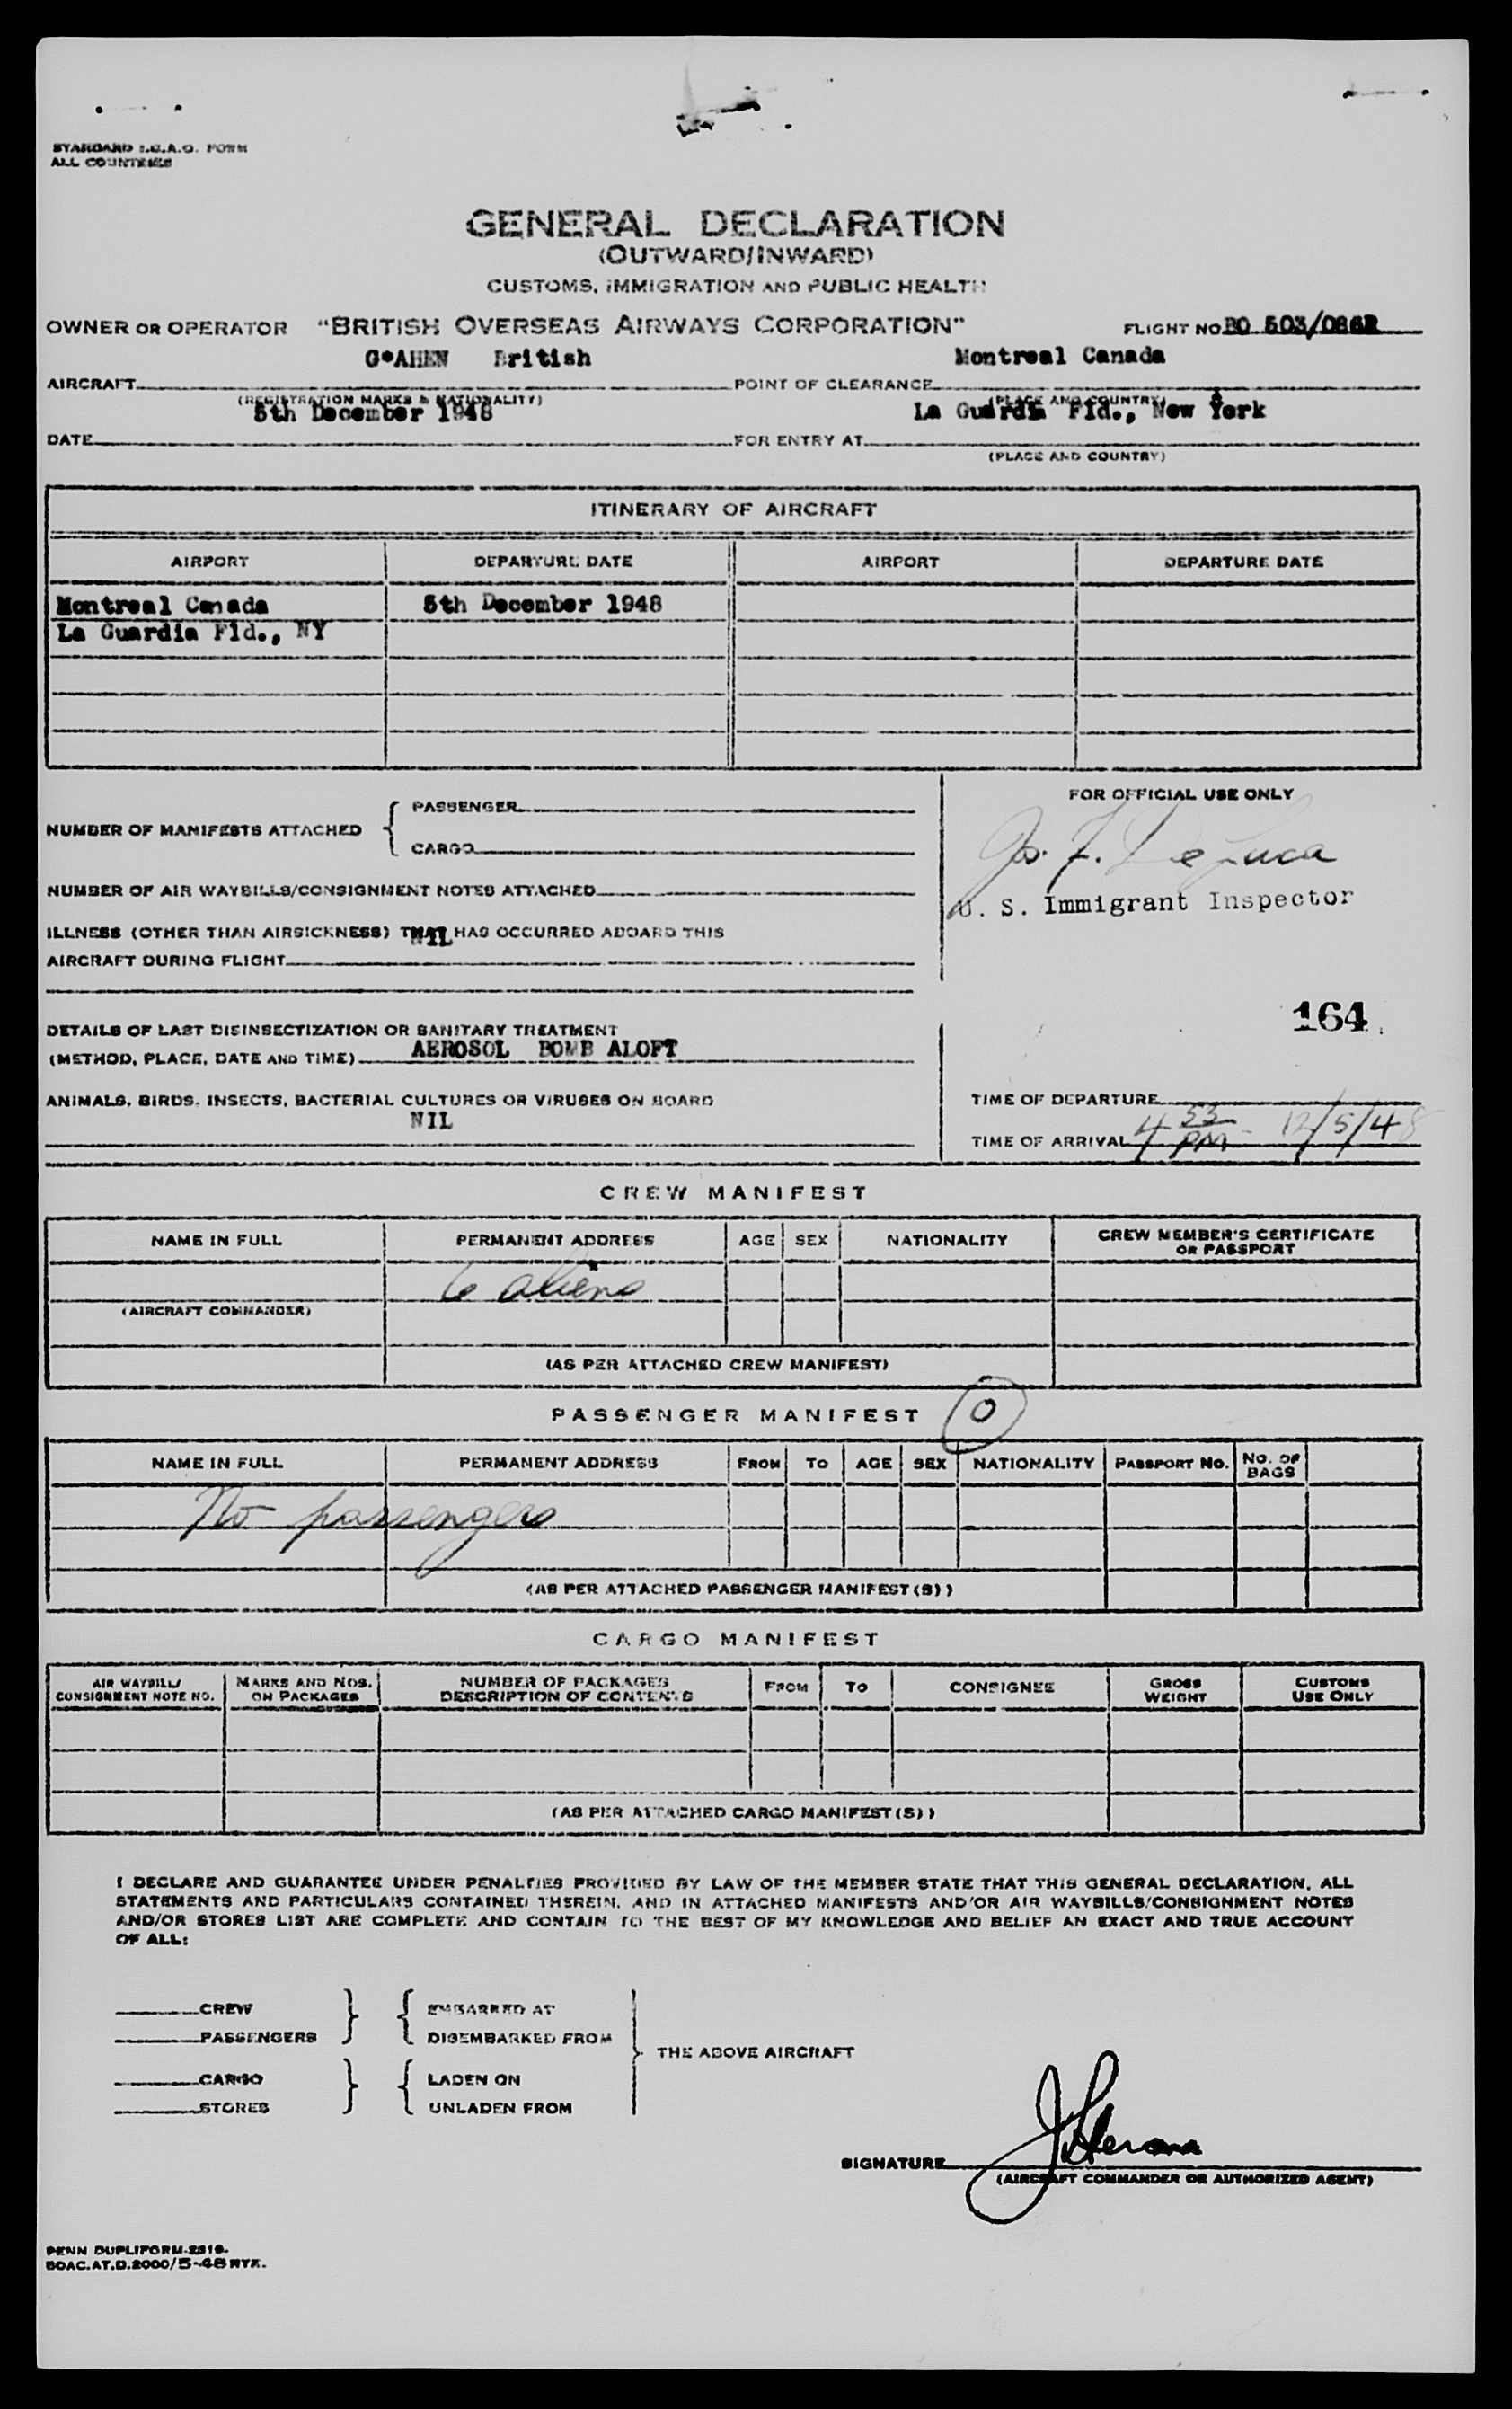 STANDARD I.C.A.O. FORM
ALL COUNTRIES
GENERAL DECLARATION
(OUTWARD/INWARD)
CUSTOMS, IMMIGRATION AND PUBLIC HEALTH
OWNER OR OPERATOR "BRITISH OVERSEAS AIRWAYS CORPORATION" FLIGHT NO. BO 503/086R
G-AHEN British Montreal Canada
AIRCRAFT POINT OF CLEARANCE
(REGISTRATION MARKS & NATIONALITY) (PLACE AND COUNTRY)
5th December 1948 La Guardia Fld., New York
DATE FOR ENTRY AT
(PLACE AND COUNTRY)
ITINERARY OF AIRCRAFT
AIRPORT DEPARTURE DATE AIRPORT DEPARTURE DATE
Montreal Canada 5th December 1948
La Guardia Fld., NY
FOR OFFICIAL USE ONLY
NUMBER OF MANIFESTS ATTACHED { PASSENGER
CARGO
Jos. F. De Luca
NUMBER OF AIR WAYBILLS/CONSIGNMENT NOTES ATTACHED
U. S. Immigrant Inspector
ILLNESS (OTHER THAN AIRSICKNESS) THAT HAS OCCURRED ABOARD THIS
NIL
AIRCRAFT DURING FLIGHT
164
DETAILS OF LAST DISINSECTIZATION OR SANITARY TREATMENT
(METHOD, PLACE, DATE AND TIME) AEROSOL BOMB ALOFT
ANIMALS, BIRDS, INSECTS, BACTERIAL CULTURES OR VIRUSES ON BOARD
NIL
TIME OF DEPARTURE
TIME OF ARRIVAL 4 53 PM - 12/5/48
CREW MANIFEST
NAME IN FULL PERMANENT ADDRESS AGE SEX NATIONALITY CREW MEMBER'S CERTIFICATE OR PASSPORT
6 aliens
(AIRCRAFT COMMANDER)
(AS PER ATTACHED CREW MANIFEST)
PASSENGER MANIFEST 0
NAME IN FULL PERMANENT ADDRESS FROM TO AGE SEX NATIONALITY PASSPORT NO. NO. OF BAGS
No passengers
(AS PER ATTACHED PASSENGER MANIFEST(S))
CARGO MANIFEST
AIR WAYBILL/ CONSIGNMENT NOTE NO. MARKS AND NOS. ON PACKAGES NUMBER OF PACKAGES DESCRIPTION OF CONTENTS FROM TO CONSIGNEE GROSS WEIGHT CUSTOMS USE ONLY
(AS PER ATTACHED CARGO MANIFEST(S))
I DECLARE AND GUARANTEE UNDER PENALTIES PROVIDED BY LAW OF THE MEMBER STATE THAT THIS GENERAL DECLARATION, ALL
STATEMENTS AND PARTICULARS CONTAINED THEREIN, AND IN ATTACHED MANIFESTS AND/OR AIR WAYBILLS/CONSIGNMENT NOTES
AND/OR STORES LIST ARE COMPLETE AND CONTAIN TO THE BEST OF MY KNOWLEDGE AND BELIEF AN EXACT AND TRUE ACCOUNT
OF ALL:
CREW EMBARKED AT
PASSENGERS DISEMBARKED FROM
THE ABOVE AIRCRAFT
CARGO LADEN ON
STORES UNLADEN FROM
SIGNATURE
(AIRCRAFT COMMANDER OR AUTHORIZED AGENT)
PENN DUPLIFORM-2819-
BOAC.AT.D.2000/5-48 NYK.